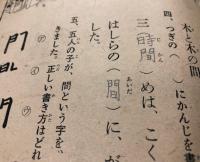 木と木の間
四、つぎの( )にかんじを書
三(時間)めは、こく
はしらの(間)に、が
あいだ
した。
五、五人の子が、問という字を
きました。正しい書き方はどれ
ア
イ
ウ